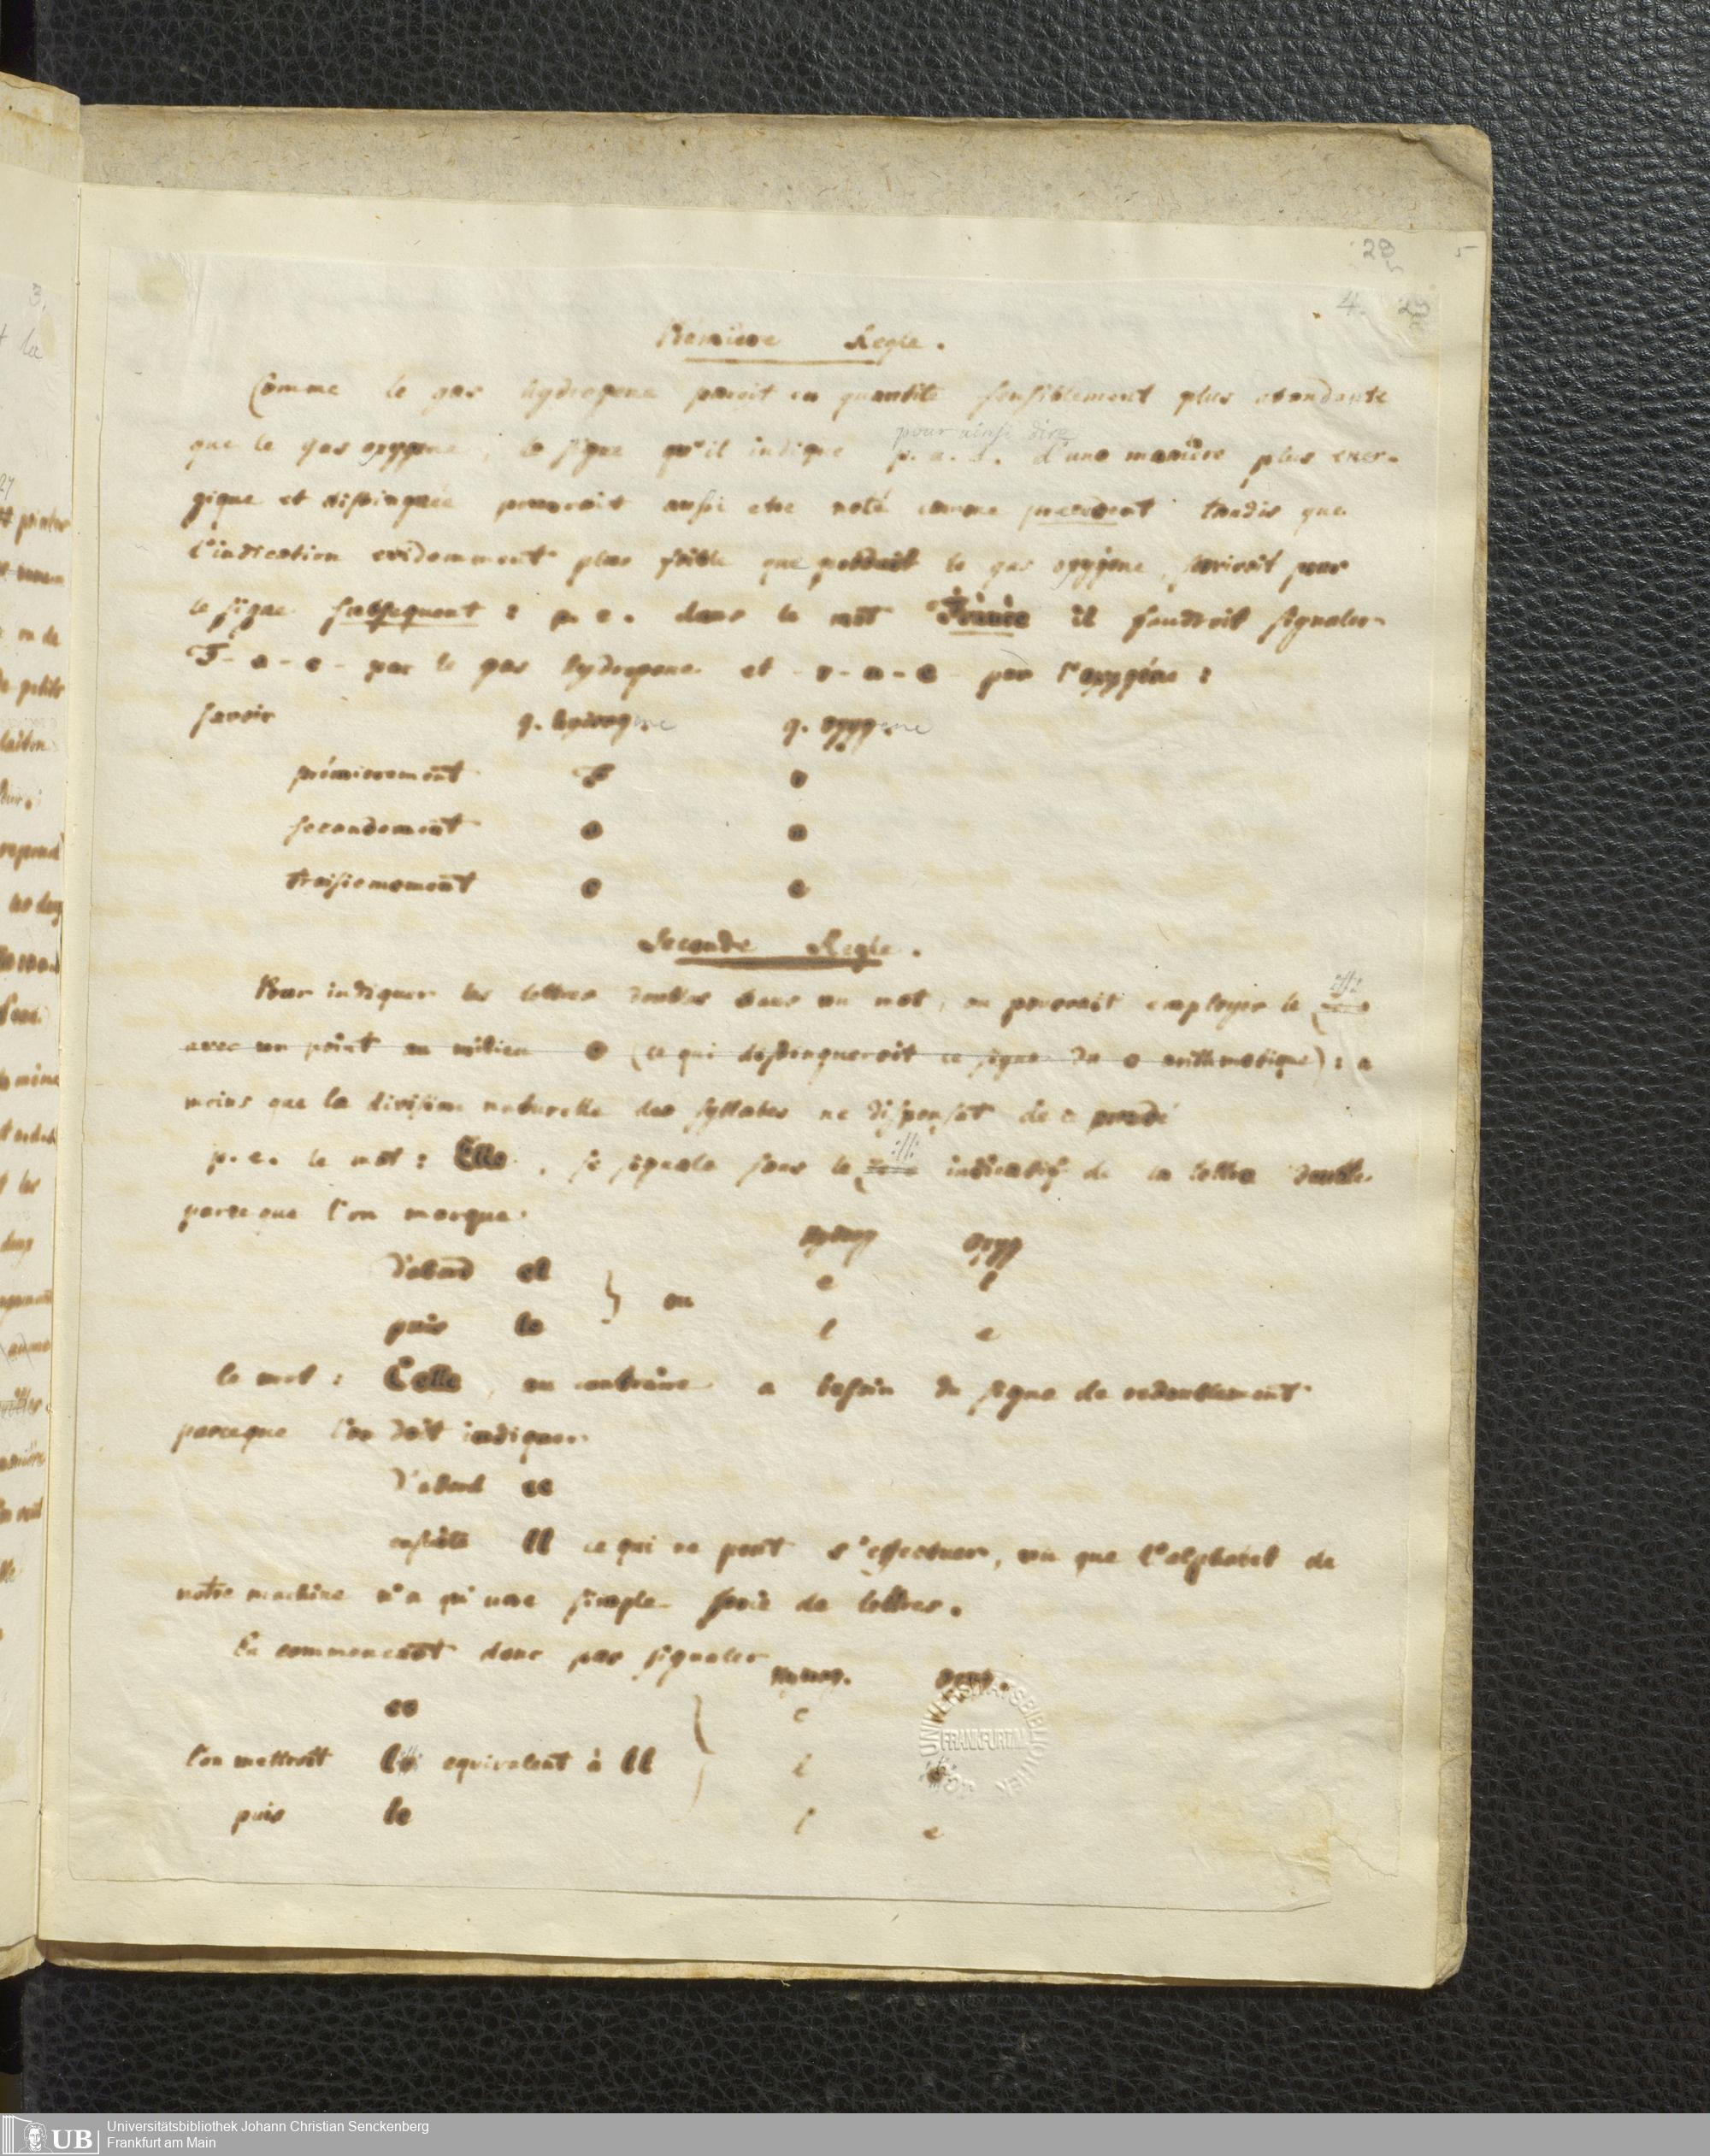 29
5
4.
Prémiere Regle.
Comme le gas hydrogene paroit en quantité sensiblement plus abondante
que le gas oxygene, le signe qu'il indique p. a. d. d'une manière plus ener-
pour ainsi dire
gique et distinguée pourroit aussi etre noté comme precedent tandis que
l'indication evidemment plus foible que produit le gas oxygene, serviroit pour
le signe subsequent : p. e. dans le mot France il faudroit signaler
F - a - c - par le gas hydrogene et - r - n - e - par l'oxygène :
savoir g. hydrogene g. oxygene
prémierement F r
secondement a n
troisiemement c e
Seconde Regle.
Pour indiquer les lettres doubles dans un mot, on pourroit employer le zero
avec un point au milieu (ce qui distingueroit ce signe du o arithmetique) : a
moins que la division naturelle des syllabes ne dispensât de ce
p. e. le mot : Elle, se signale sans le zero indicatif de la lettre double
parce que l'on marque
hydrog oxyg
d'abord el } ou e l
puis le l e
le mot : Celle, au contraire a besoin du signe de redoublement
parceque l'on doit indiquer
d'abord ce
ensuite ll ce qui ne peut s'effectuer, vu que l'alphabet de
notre machine n'a qu'une simple serie de lettres.
En commencant donc par signaler
hydrog. oxyg.
ce c
l'on mettroit equivalent à ll l
puis le l e
UNIVERSITÄTSBIBLIOTHEK
FRANKFURT
3.
+ la
UB
Universitätsbibliothek Johann Christian Senckenberg
Frankfurt am Main